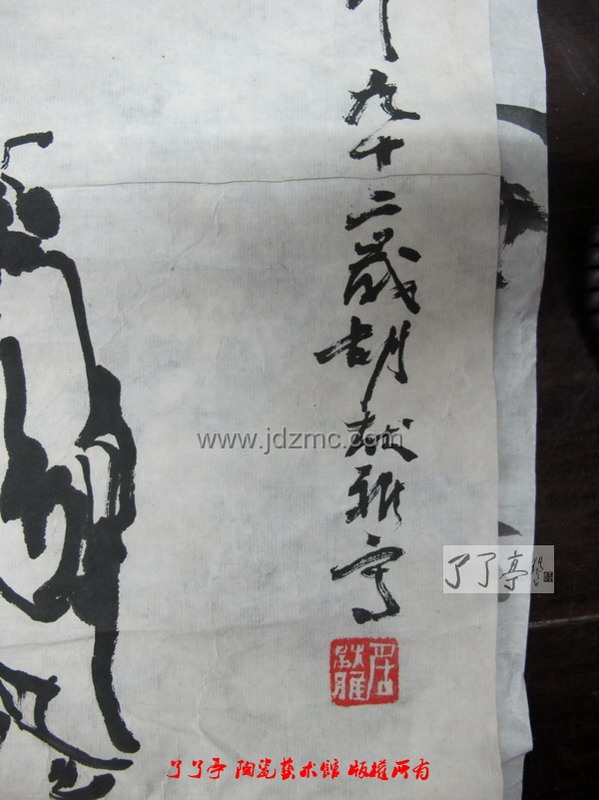 九十二歲胡献雅写
www.jdzmc.com
了了亭
了了亭 陶瓷藝術館 版權所有